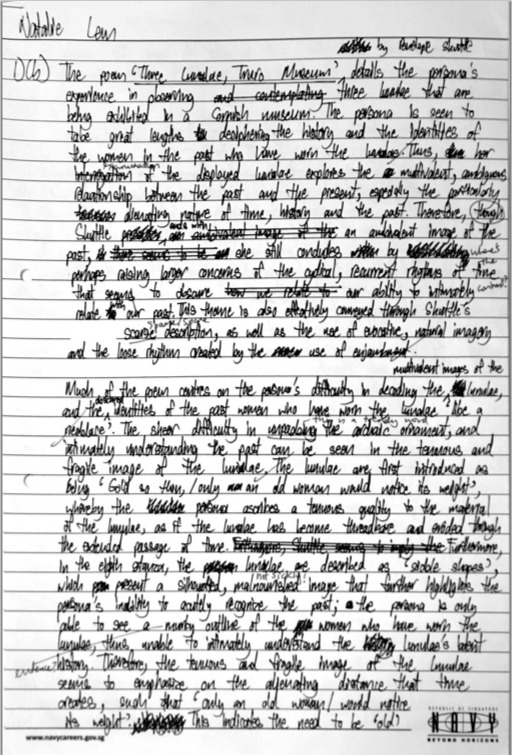 Natalie Lem
by Penelope Shuttle
1)(b) The poem "Three Lunulae, Truro Museum" details the persona's
experience in observing and contemplating three lunulae that are
being exhibited in a Cornish museum. The persona is seen to
take great lengths to deciphering the history and the identities of
the women in the past who have worn the lunulae. Thus, her
of the displayed lunulae explores the multivalent, ambiguous
relationship between the past and the present, especially the particularly
alienating nature of time, history and the past. Therefore, though
Shuttle ends with an ambivalent image of the
past, she still concludes by
perhaps raising larger concerns of the cyclical, recurrent rhythms of time
that seems to obscure how we relate to our ability to intimately
relate with our past. This theme is also effectively conveyed through Shuttle's
sparse/spare
scarse description, as well as the use of evocative, natural imagery
and the loose rhythm created by the use of enjambment.
multivalent images of the
Much of the poem centres on the persona's difficulty in decoding the lunulae,
and the identities of the past women who have worn the lunulae "like a
necklace". The sheer difficulty in unpacking the archaic ornament, and
intimately understanding the past can be seen in the tenuous and
fragile image of the lunulae. The lunulae are first introduced as
being "Gold so thin, / only an old woman would notice its weight",
whereby the persona ascribes a tenuous quality to the material
of the lunulae, as if the lunulae has become threadbare and eroded through
the extended passage of time. Furthermore,
in the eighth stanza, the lunulae are described as "sickle shapes",
not sickly!
which present a silhouetted, malnourished image that further highlights the
persona's inability to acutely recognize the past; the persona is only
able to see a murky outline of the women who have worn the
lunulae, thus unable to intimately understand the lunulae's latent
history. Therefore, the tenuous and fragile image of the lunulae
evidence?
seems to emphasize on the alienating distance that time
creates, such that "only an old woman / would notice
its weight". This indicates the need to be "old"
www.navycareers.gov.sg
REPUBLIC OF SINGAPORE
NAVY
BEYOND HORIZONS